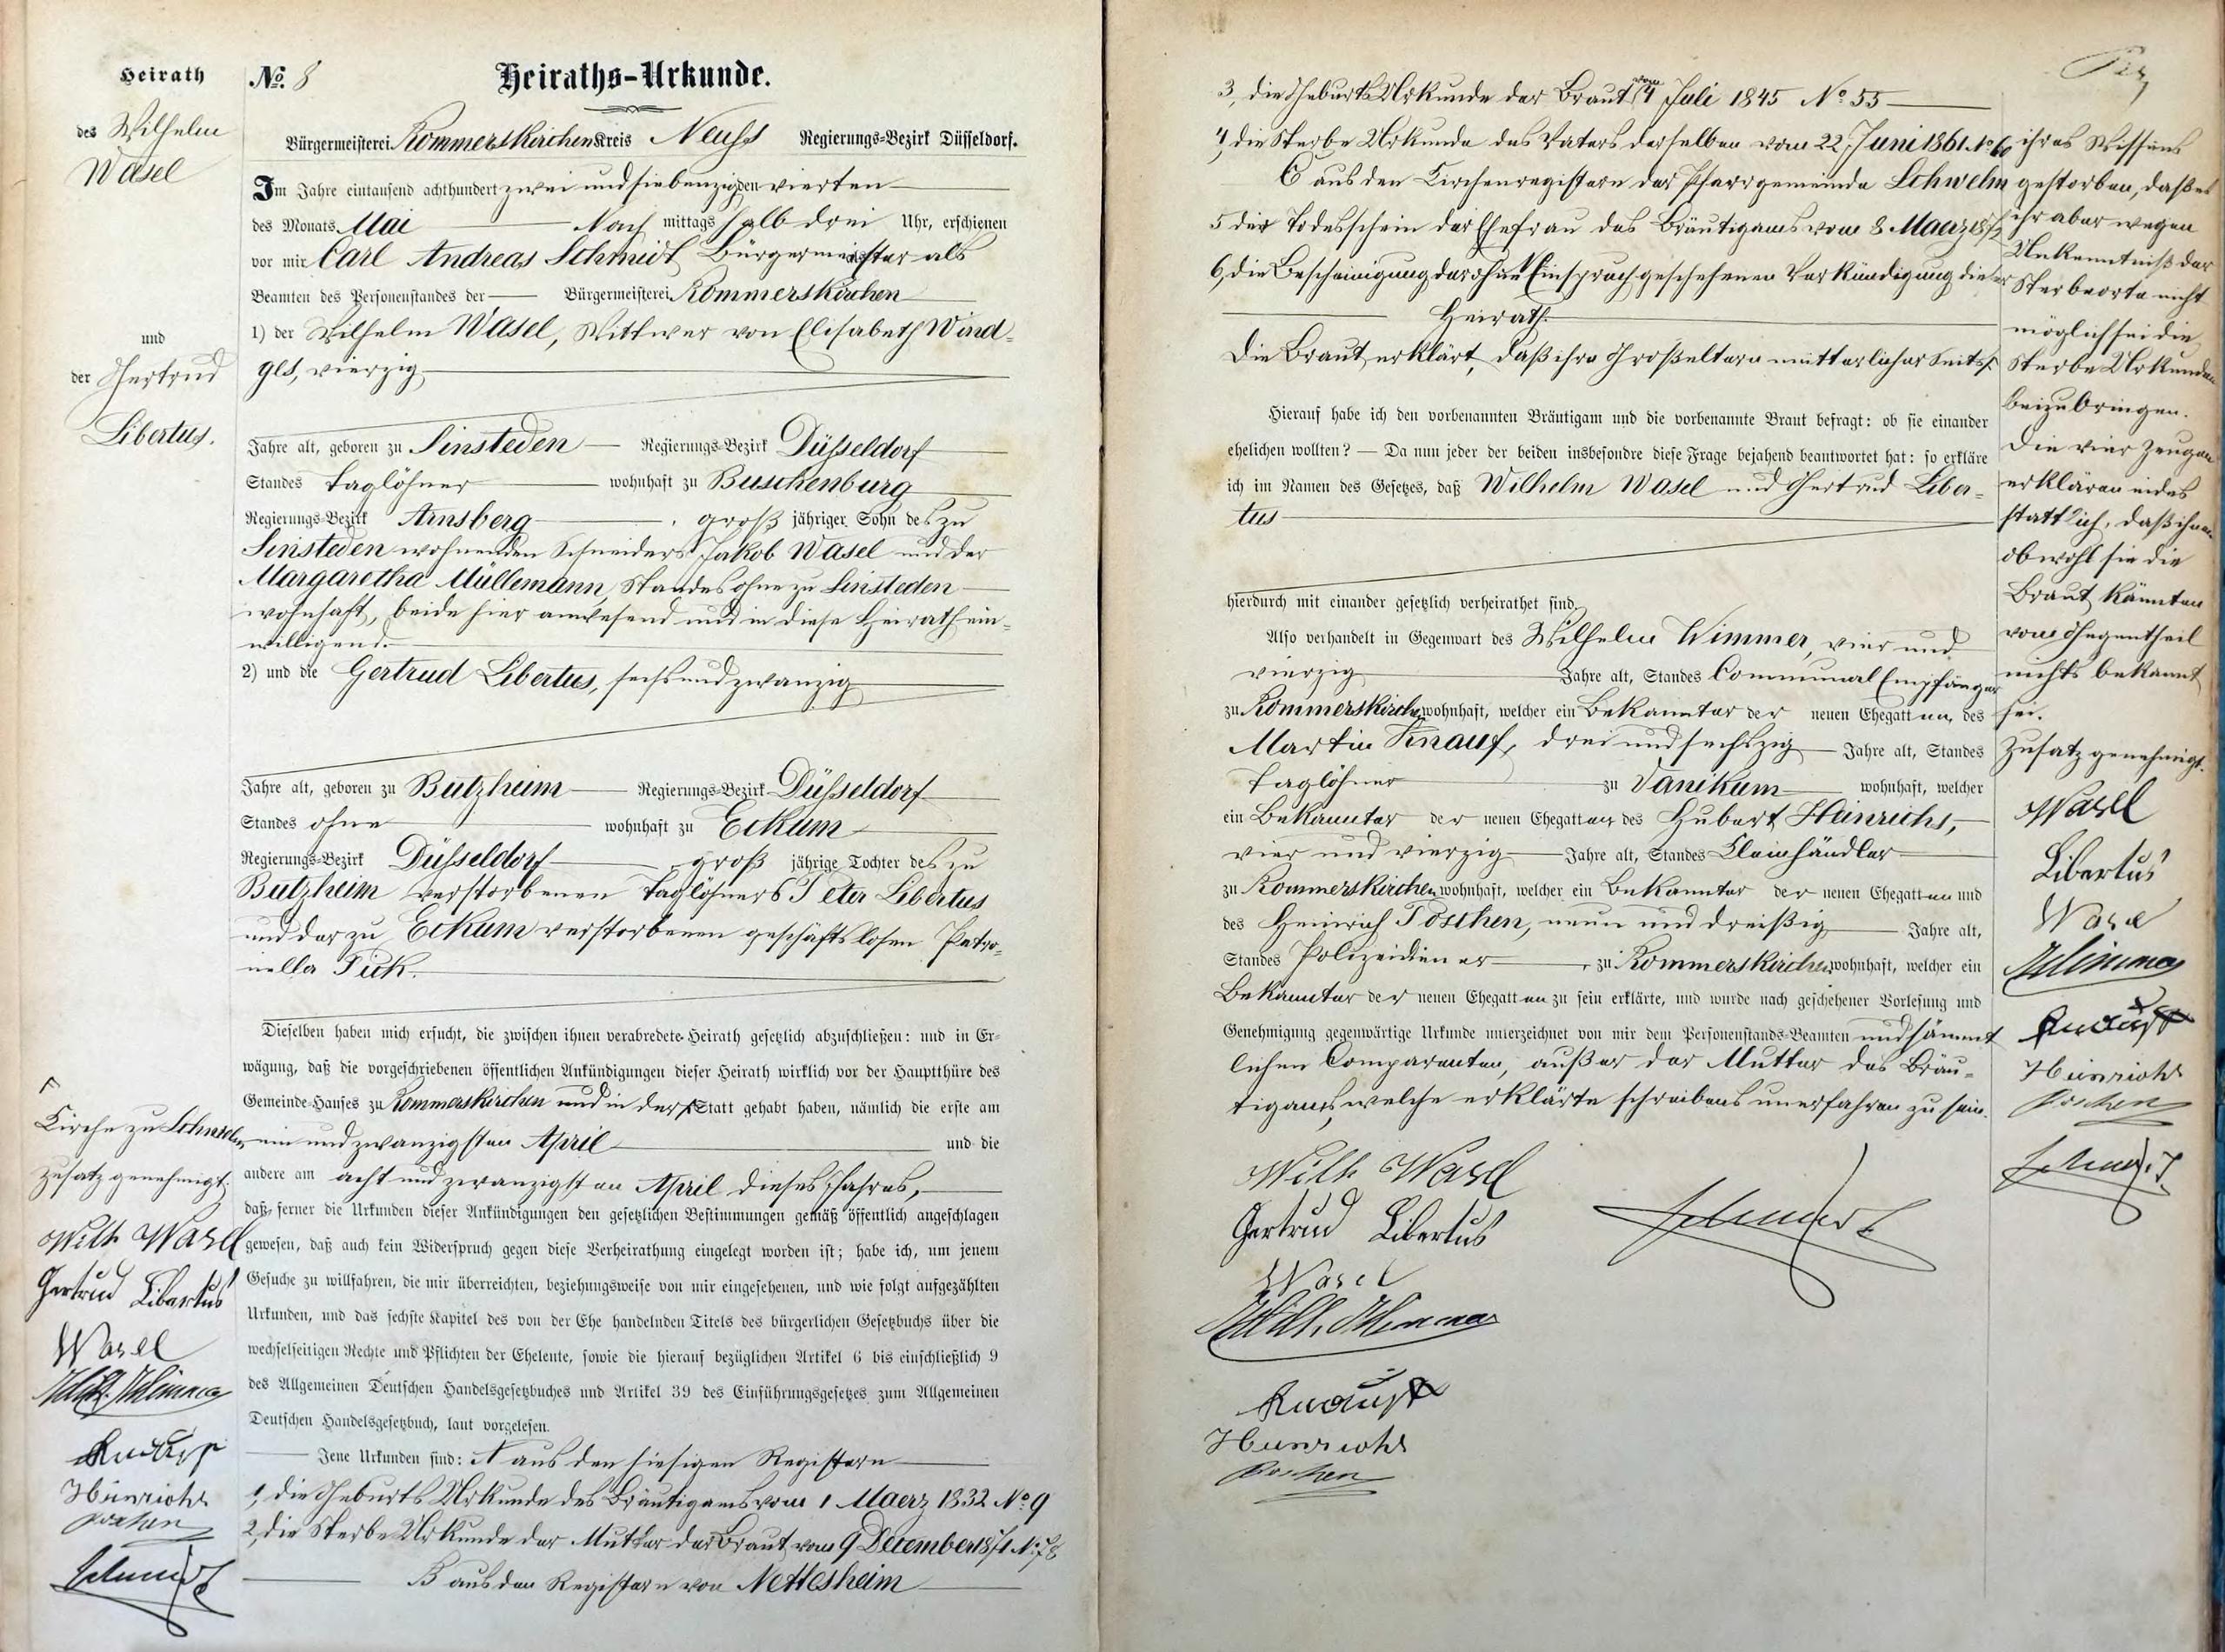 Heirath
des Wilhelm
Wasel
und
der Gertrud
Libertus.
No. 8 Heiraths-Urkunde.
Bürgermeisterei Rommerskirchen Kreis Neuss Regierungs-Bezirk Düsseldorf.
Im Jahre eintausend achthundert zwei und siebenzig den vierten
des Monats Mai Nach mittags halb drei Uhr, erschienen
vor mir Carl Andreas Schmidt Bürgermeister als
Beamten des Personenstandes der Bürgermeisterei Rommerskirchen
1) der Wilhelm Wasel, Wittwer von Elisabeth Wind-
ges, vierzig
Jahre alt, geboren zu Sinsteden Regierungs-Bezirk Düsseldorf
Standes Taglöhner wohnhaft zu Buschenburg
Regierungs-Bezirk Arnsberg, groß jähriger Sohn des zu
Sinsteden wohnenden Schneiders Jakob Wasel und der
Margaretha Müllemann, Standes ohne zu Sinsteden
wohnhaft, beide hier anwesend und in diese Heirath ein-
willigend.
2) und die Gertrud Libertus, sechs und zwanzig
Jahre alt, geboren zu Butzheim Regierungs-Bezirk Düsseldorf
Standes ohne wohnhaft zu Eckum
Regierungs-Bezirk Düsseldorf, groß jährige Tochter des zu
Butzheim verstorbenen Taglöhners Peter Libertus
und der zu Eckum verstorbenen geschäftslosen Petro-
nella Pick.
Dieselben haben mich ersucht, die zwischen ihnen verabredete Heirath gesetzlich abzuschließen: und in Er-
wägung, daß die vorgeschriebenen öffentlichen Ankündigungen dieser Heirath wirklich vor der Hauptthüre des
Gemeinde-Hauses zu Rommerskirchen und in der Γ Statt gehabt haben, nämlich die erste am
ein und zwanzigsten April und die
andere am acht und zwanzigsten April dieses Jahres,
daß ferner die Urkunden dieser Ankündigungen den gesetzlichen Bestimmungen gemäß öffentlich angeschlagen
gewesen, daß auch kein Widerspruch gegen diese Verheirathung eingelegt worden ist; habe ich, um jenem
Gesuche zu willfahren, die mir überreichten, beziehungsweise von mir eingesehenen, und wie folgt aufgezählten
Urkunden, und das sechste Kapitel des von der Ehe handelnden Titels des bürgerlichen Gesetzbuchs über die
wechselseitigen Rechte und Pflichten der Eheleute, sowie die hierauf bezüglichen Artikel 6 bis einschließlich 9
des Allgemeinen Deutschen Handelsgesetzbuches und Artikel 39 des Einführungsgesetzes zum Allgemeinen
Deutschen Handelsgesetzbuch, laut vorgelesen.
Jene Urkunden sind: A aus den hiesigen Registern
1, die Geburts Urkunde des Bräutigams vom 1 Maerz 1832 No. 9
2, die Sterbe Urkunde der Mutter der Braut vom 9 December 1871 No. 78
B aus den Registern von Nettesheim
Γ
Kirche zu Schwelm
Zusatz genehmigt.
Wilh Wasel
Gertrud Libertus
Wasel
Wilh. Wimmer
Knauf
Heinrichs
Poschen
Schmidt
3, die Geburts Urkunde der Braut vom 4 Juli 1845 No 55
4, die Sterbe Urkunde des Vaters derselben vom 22 Juni 1861 No 60
C aus den Kirchenregistern der Pfarrgemeinde Schwelm
5 der Todesschein der Ehefrau des Bräutigams vom 8 Maerz 1872
6, die Bescheinigung der ohne Einspruch geschehenen Verkündigung dieser
Heirath.
Die Braut erklärt, daß ihre Großeltern mütterlicher Seits Γ
Hierauf habe ich den vorbenannten Bräutigam und die vorbenannte Braut befragt: ob sie einander
ehelichen wollten? — Da nun jeder der beiden insbesondre diese Frage bejahend beantwortet hat: so erkläre
ich im Namen des Gesetzes, daß Wilhelm Wasel und Gertrud Liber-
tus
hierdurch mit einander gesetzlich verheirathet sind.
Also verhandelt in Gegenwart des Wilhelm Wimmer, vier und
vierzig Jahre alt, Standes Communal Empfänger
zu Rommerskirchen wohnhaft, welcher ein Bekannter der neuen Ehegatten, des
Martin Knauf, drei und sechszig Jahre alt, Standes
Taglöhner zu Vanikum wohnhaft, welcher
ein Bekannter der neuen Ehegatten des Hubert Heinrichs,
vier und vierzig Jahre alt, Standes Kleinhändler
zu Rommerskirchen wohnhaft, welcher ein Bekannter der neuen Ehegatten und
des Heinrich Poschen, neun und dreißig Jahre alt,
Standes Polizeidiener, zu Rommerskirchen wohnhaft, welcher ein
Bekannter der neuen Ehegatten zu sein erklärte, und wurde nach geschehener Vorlesung und
Genehmigung gegenwärtige Urkunde unterzeichnet von mir dem Personenstands-Beamten und sämmt
lichen Comparenten, außer der Mutter des Bräu-
tigams, welche erklärte schreibens unerfahren zu sein.
Wilh Wasel
Gertrud Libertus
Wasel
Wilh. Wimmer
Knauf
Heinrichs
Poschen
Schmidt
ihres Wissens
gestorben, daß es
ihr aber wegen
Unkenntniß der
Sterbeorte nicht
möglich sei die
Sterbe Urkunden
beizubringen.
Die vier Zeugen
erklären eides
stattlich, daß ihnen
obwohl sie die
Braut kännten
vom Gegentheil
nichts bekannt
sei.
Zusatz genehmigt.
Wasel
Libertus
Wasel
Wimmer
Knauf
Heinrichs
Poschen
Schmidt